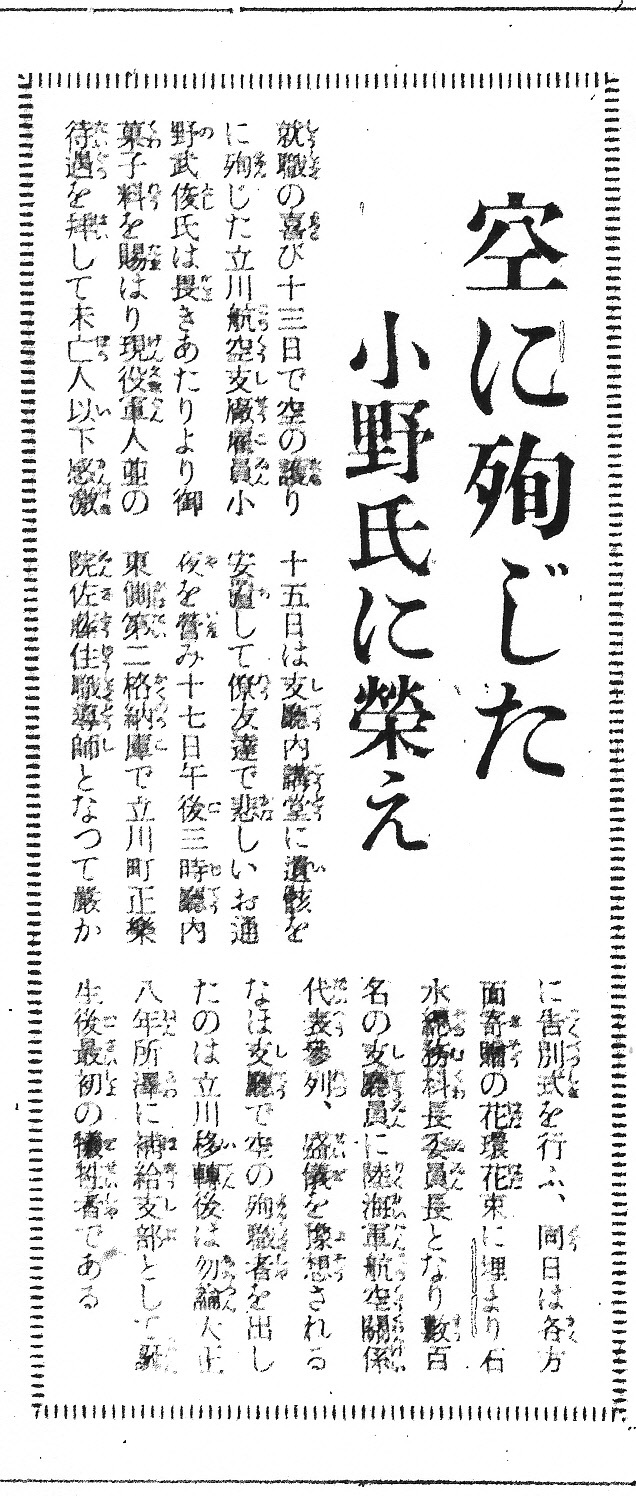 空に殉じた
小野氏に榮え
就職の喜び十三日で空の護り
に殉じた立川航空支廠雇員小
野武俊氏は畏きあたりより御
菓子料を賜はり現役軍人並の
待遇を拝して未亡人以下感激
十五日は支廳内講堂に遺骸を
安置して僚友達で悲しいお通
夜を營み十七日午後三時廳内
東側第二格納庫で立川町正樂
院佐藤住職導師となつて嚴か
に告別式を行ふ、同日は各方
面寄贈の花環花束に埋まり石
水總務科長委員長となり數百
名の支廳員に陸海軍航空關係
代表參列、盛儀を豫想される
なほ支廳で空の殉職者を出し
たのは立川移轉後は勿論大正
八年所澤に補給支部として
生後最初の犠牲者である